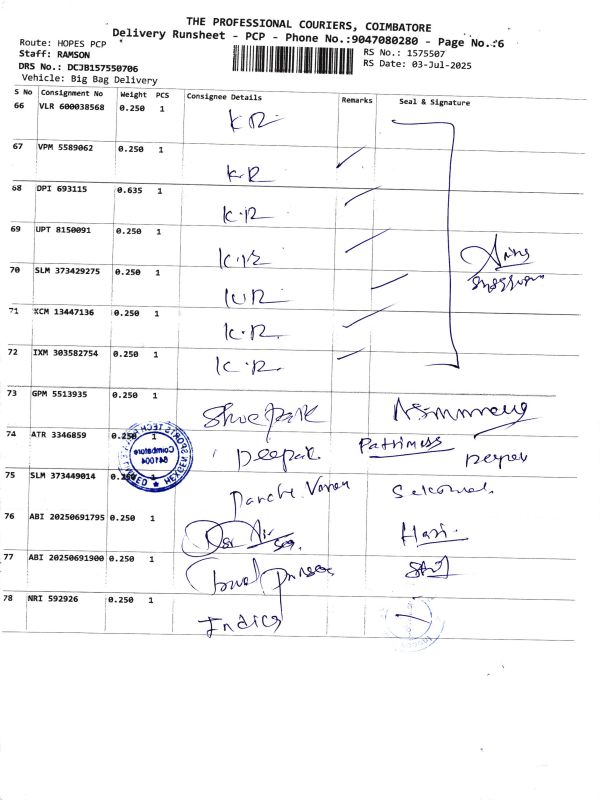 THE PROFESSIONAL COURIERS, COIMBATORE
Delivery Runsheet - PCP - Phone No.:9047080280 - Page No.:6
Route: HOPES PCP
Staff: RAMSON
RS No.: 1575507
DRS No.: DCJB157550706
RS Date: 03-Jul-2025
Vehicle: Big Bag Delivery
S No Consignment No Weight PCS Consignee Details Remarks Seal & Signature
66 VLR 600038568 0.250 1 K R
67 VPM 5589062 0.250 1 K R
68 DPI 693115 0.635 1 K.R
69 UPT 8150091 0.250 1 K.R
70 SLM 373429275 0.250 1 K R
71 KCM 13447136 0.250 1 K.R.
72 IXM 303582754 0.250 1 K.R.
73 GPM 5513935 0.250 1 Shoe Park
74 ATR 3346859 0.250 1 Deepak
75 SLM 373449014 0.250 1 Selvamel
76 ABI 20250691795 0.250 1 Hari
77 ABI 20250691900 0.250 1
78 NRI 592926 0.250 1 Indica
Coimbatore
641004